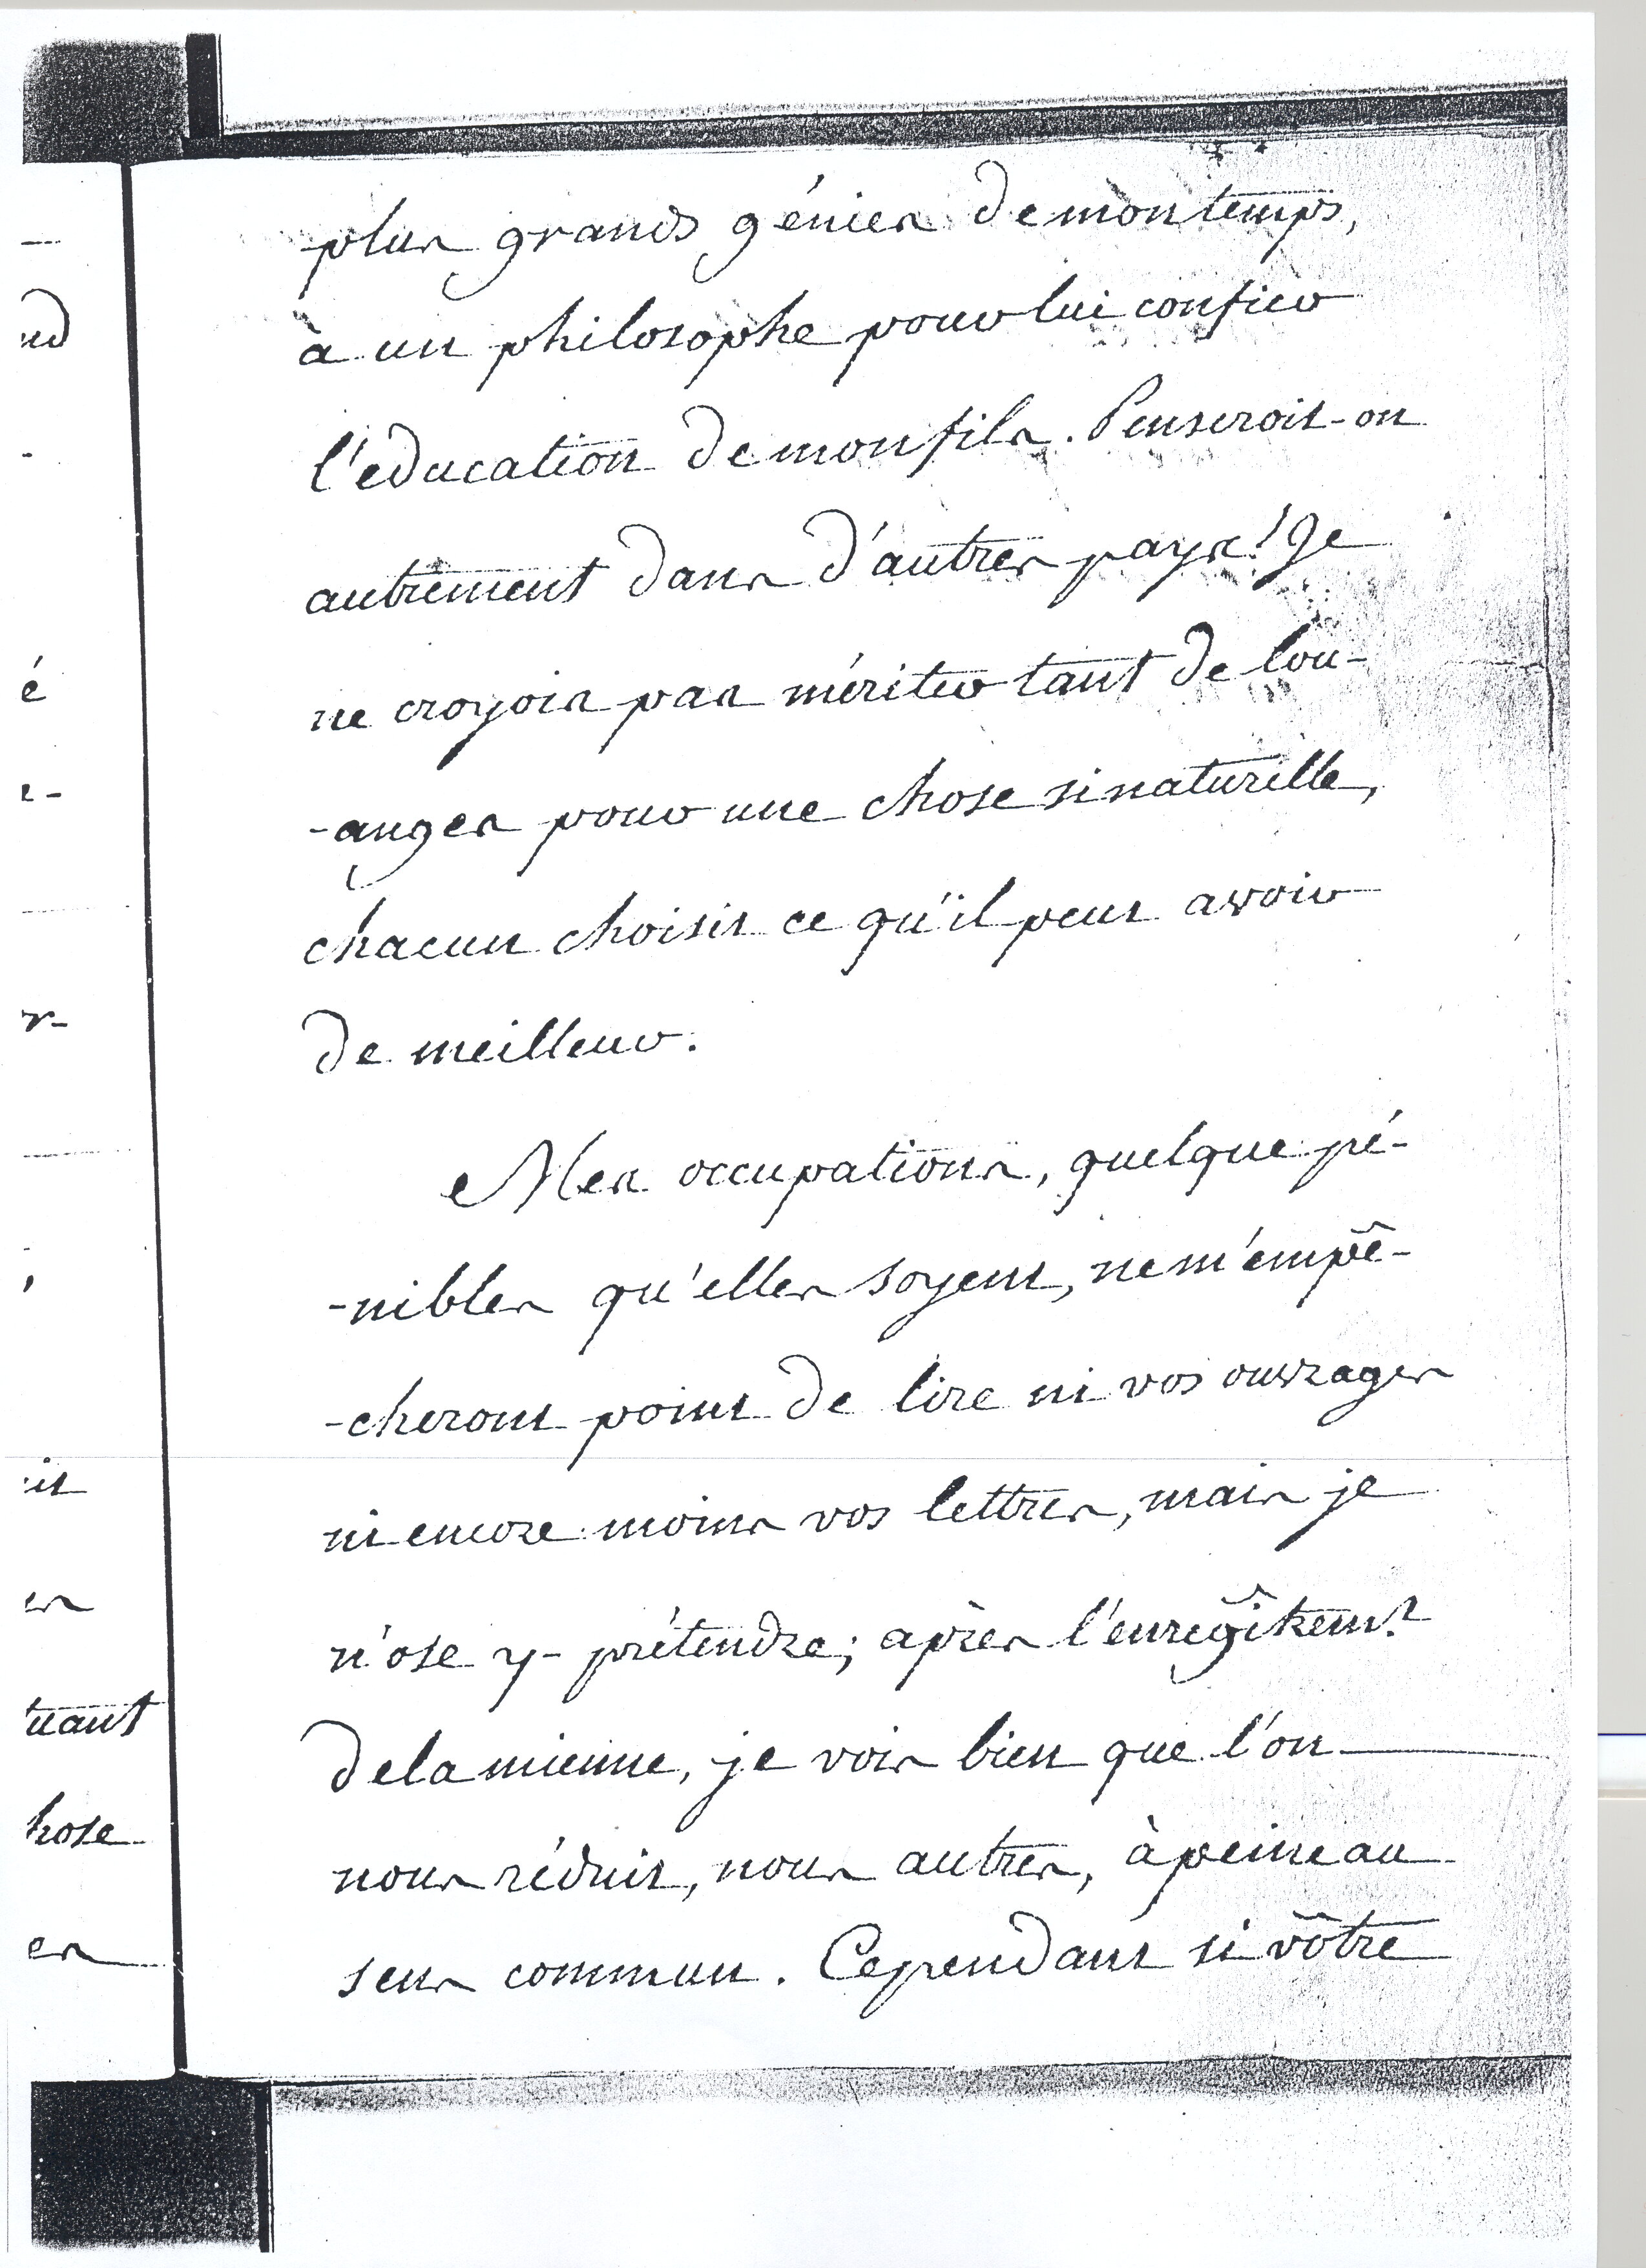 plus grands génies de mon temps,
à un philosophe pour lui confier
l'education de mon fils. Penseroit-on
autrement dans d'autres pays! Je
ne croyois pas mériter tant de lou-
-anges pour une chose si naturelle,
chacun choisit ce qu'il peut avoir
de meilleur.
Mes occupations, quelque pé-
-nibles qu'elles soyent, ne m'empê-
-cheront point de lire ni vos ouvrages
ni encore moins vos lettres, mais je
n'ose y prétendre; après l'enregîtremt.
de la mienne, je vois bien que l'on
nous réduit, nous autres, à peine au
sens commun. Cependant si vôtre
nd
é
e-
r-
it
es
uant
hose
es